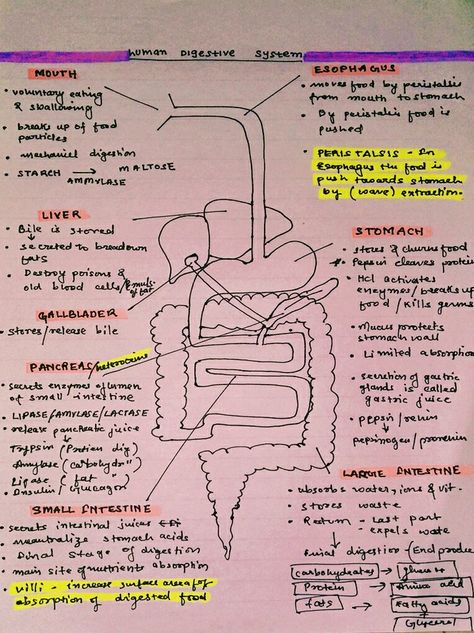 Human Digestive System
MOUTH
• voluntary eating
& swallowing
• breaks up of food
particles
• mechanical digestion
• STARCH → MALTOSE
AMMYLASE
ESOPHAGUS
• moves food by peristalsis
from mouth to stomach
• By peristalsis food is
pushed
• PERISTALSIS - In
Esophagus the food is
push towards stomach
by (wave) extraction.
LIVER
• Bile is stored
• secreted to breakdown
fats
• Destroy poisons &
old blood cells/Emuls.
of fat
GALLBLADER
• stores/release bile
STOMACH
• stores & churns food
• Pepsin cleaves protein
• Hcl activates
enzymes/breaks up
food/kills germs
• Mucus protects
stomach wall
• Limited absorption
• secretion of gastric
glands is called
gastric juice
• pepsin/renin
pepsinogen/prorenin
PANCREAS/heterocrine
• secrets enzymes of lumen
of small intestine
• LIPASE/AMYLASE/LACTASE
• release pancreatic juice
Trypsin (Protien dig)
Amylase (carbohydrn)
Lipase ( fat " )
• Insulin/Glucagon
SMALL INTESTINE
• secrets intestinal juices
• neautralize stomach acids
• Final stage of digestion
• main site of nutrients absorption
• villi - increase surface area for
absorption of digested food
LARGE INTESTINE
• absorbs water, ions & vit.
• stores waste
• Rectum - Last part
- expels waste
Final digestion (End product
carbohydrates → glucose
Protein → Amino acid
fats → Fatty acids
Glycerol